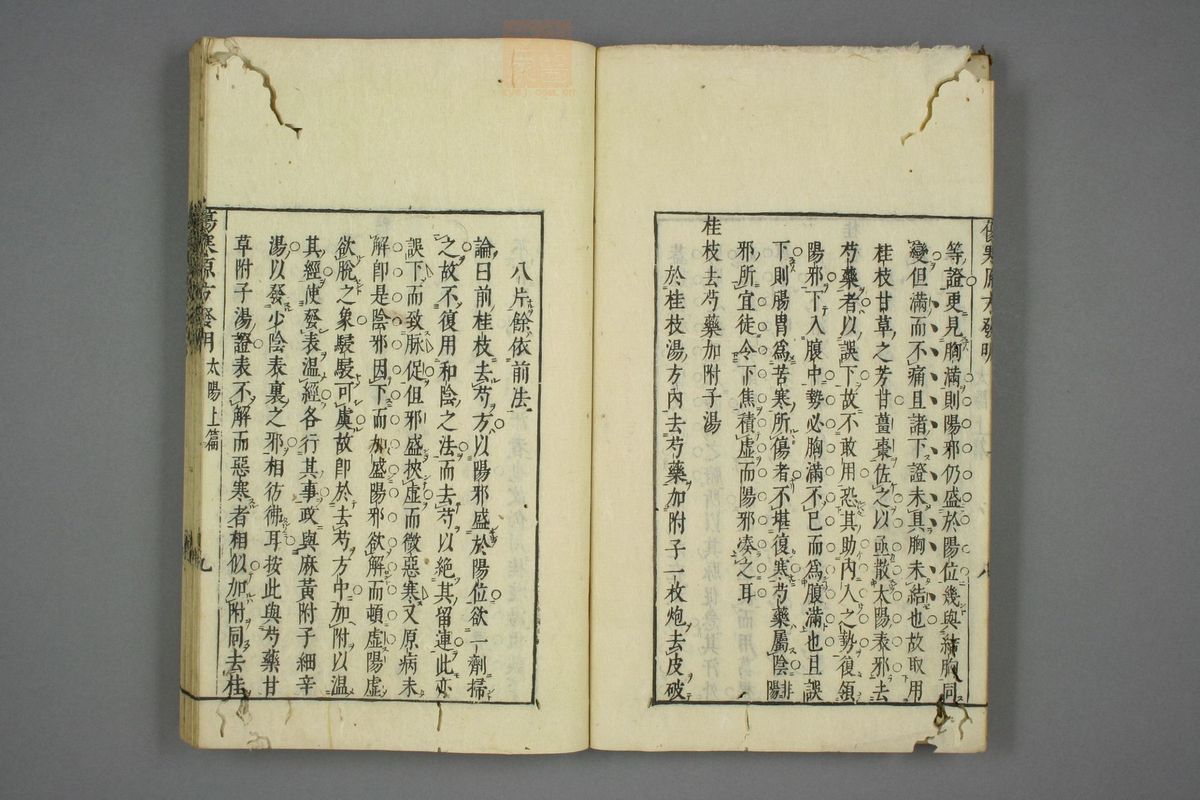 傷寒原方發明
等證更見胸滿則陽邪仍盛於陽位幾與結胸同
變但滿而不痛且諸下證未具胸未結也故取用
桂枝甘草之芳甘薑棗佐之以亟散太陽表邪去
芍藥者以誤下故不敢用恐其助內入之勢復領
陽邪下入腹中勢必胸滿不已而爲腹滿也且誤
下則腸胃爲苦寒所傷者不堪復寒芍藥屬陰非陽
邪所宜徒令下焦積虛而陽邪湊之耳
桂枝去芍藥加附子湯
於桂枝湯方內去芍藥加附子一枚炮去皮破
八片餘依前法
論曰前桂枝去芍方以陽邪盛於陽位欲一劑掃
之故不復用和陰之法而去芍以絕其留連此亦
誤下而致脉促但邪盛挾虛而微惡寒又原病未
解卽是陰邪因下而加盛陽邪欲解而頓虛陽虛
欲脫之象駸駸可虞故卽於去芍方中加附以溫
其經使發表溫經各行其事政與麻黃附子細辛
湯以發少陰表裏之邪相彷彿耳按此與芍藥甘
草附子湯證表不解而惡寒者相似加附同去桂
傷寒原方發明 太陽上篇 九